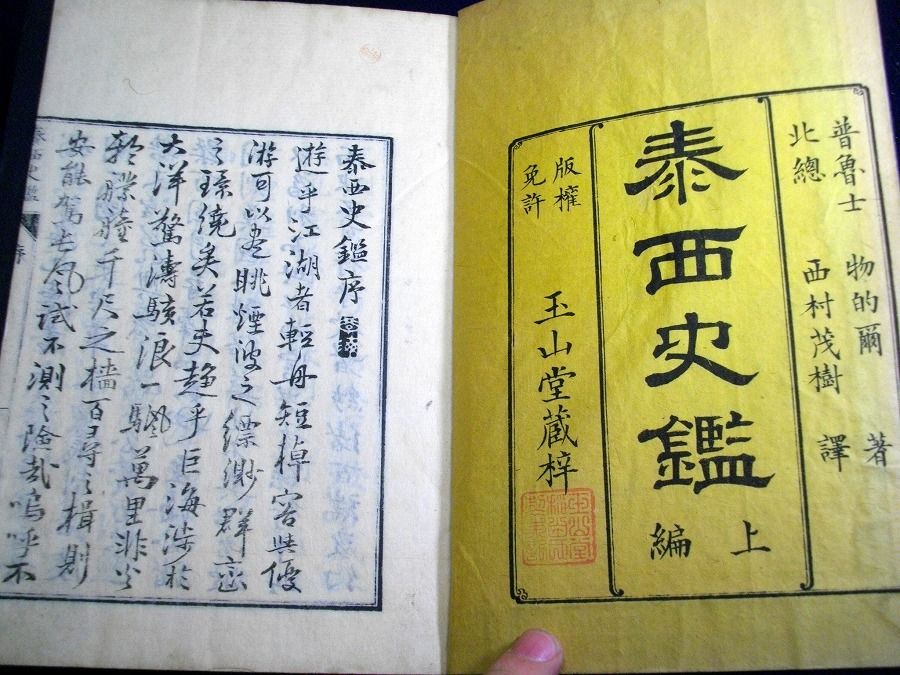 普魯士 物的爾 著
北總 西村茂樹 譯
泰西史鑑
上編
版權免許
玉山堂蔵梓
泰西史鑑序
遊乎江湖者輕舟短棹容與優
游可以盡眺煙波之縹渺群巒
之環繞矣若夫趋乎巨海渉於
大洋驚濤駭浪一颿萬里非
艨艟千尺之檣百尋之楫則
安能駕長風試不測之險哉嗚呼不